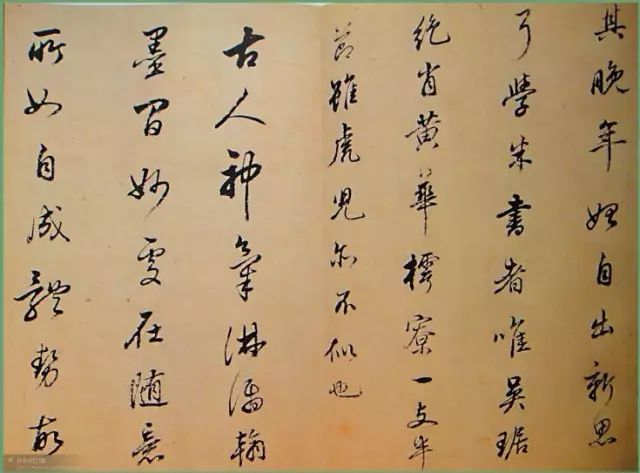 其晚年始自出新思
耳學米書者唯吳琚
絶肖黃華樗寮一支半
節雖虎兒亦不似也
古人神氣淋漓翰
墨間妙處在隨意
所如自成體勢故